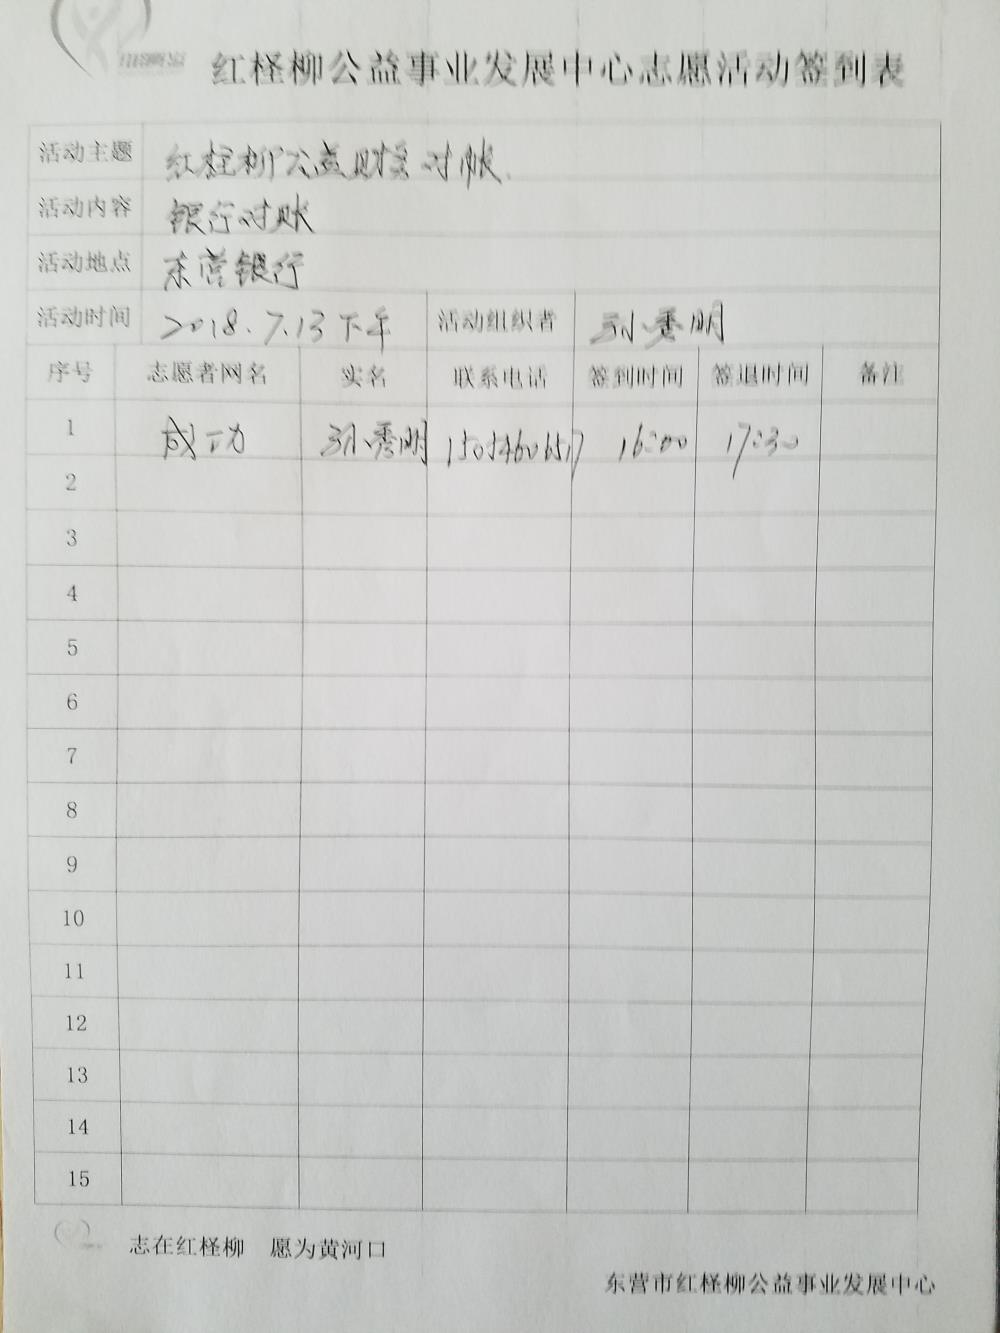 红柽柳公益事业发展中心志愿活动签到表
活动主题 红柽柳公益财务对帐
活动内容 银行对账
活动地点 东营银行
活动时间 2018.7.13下午 活动组织者 孙秀明
序号 志愿者网名 实名 联系电话 签到时间 签退时间 备注
1 成功 孙秀明 15054606517 16:00 17:30
2
3
4
5
6
7
8
9
10
11
12
13
14
15
志在红柽柳 愿为黄河口
东营市红柽柳公益事业发展中心